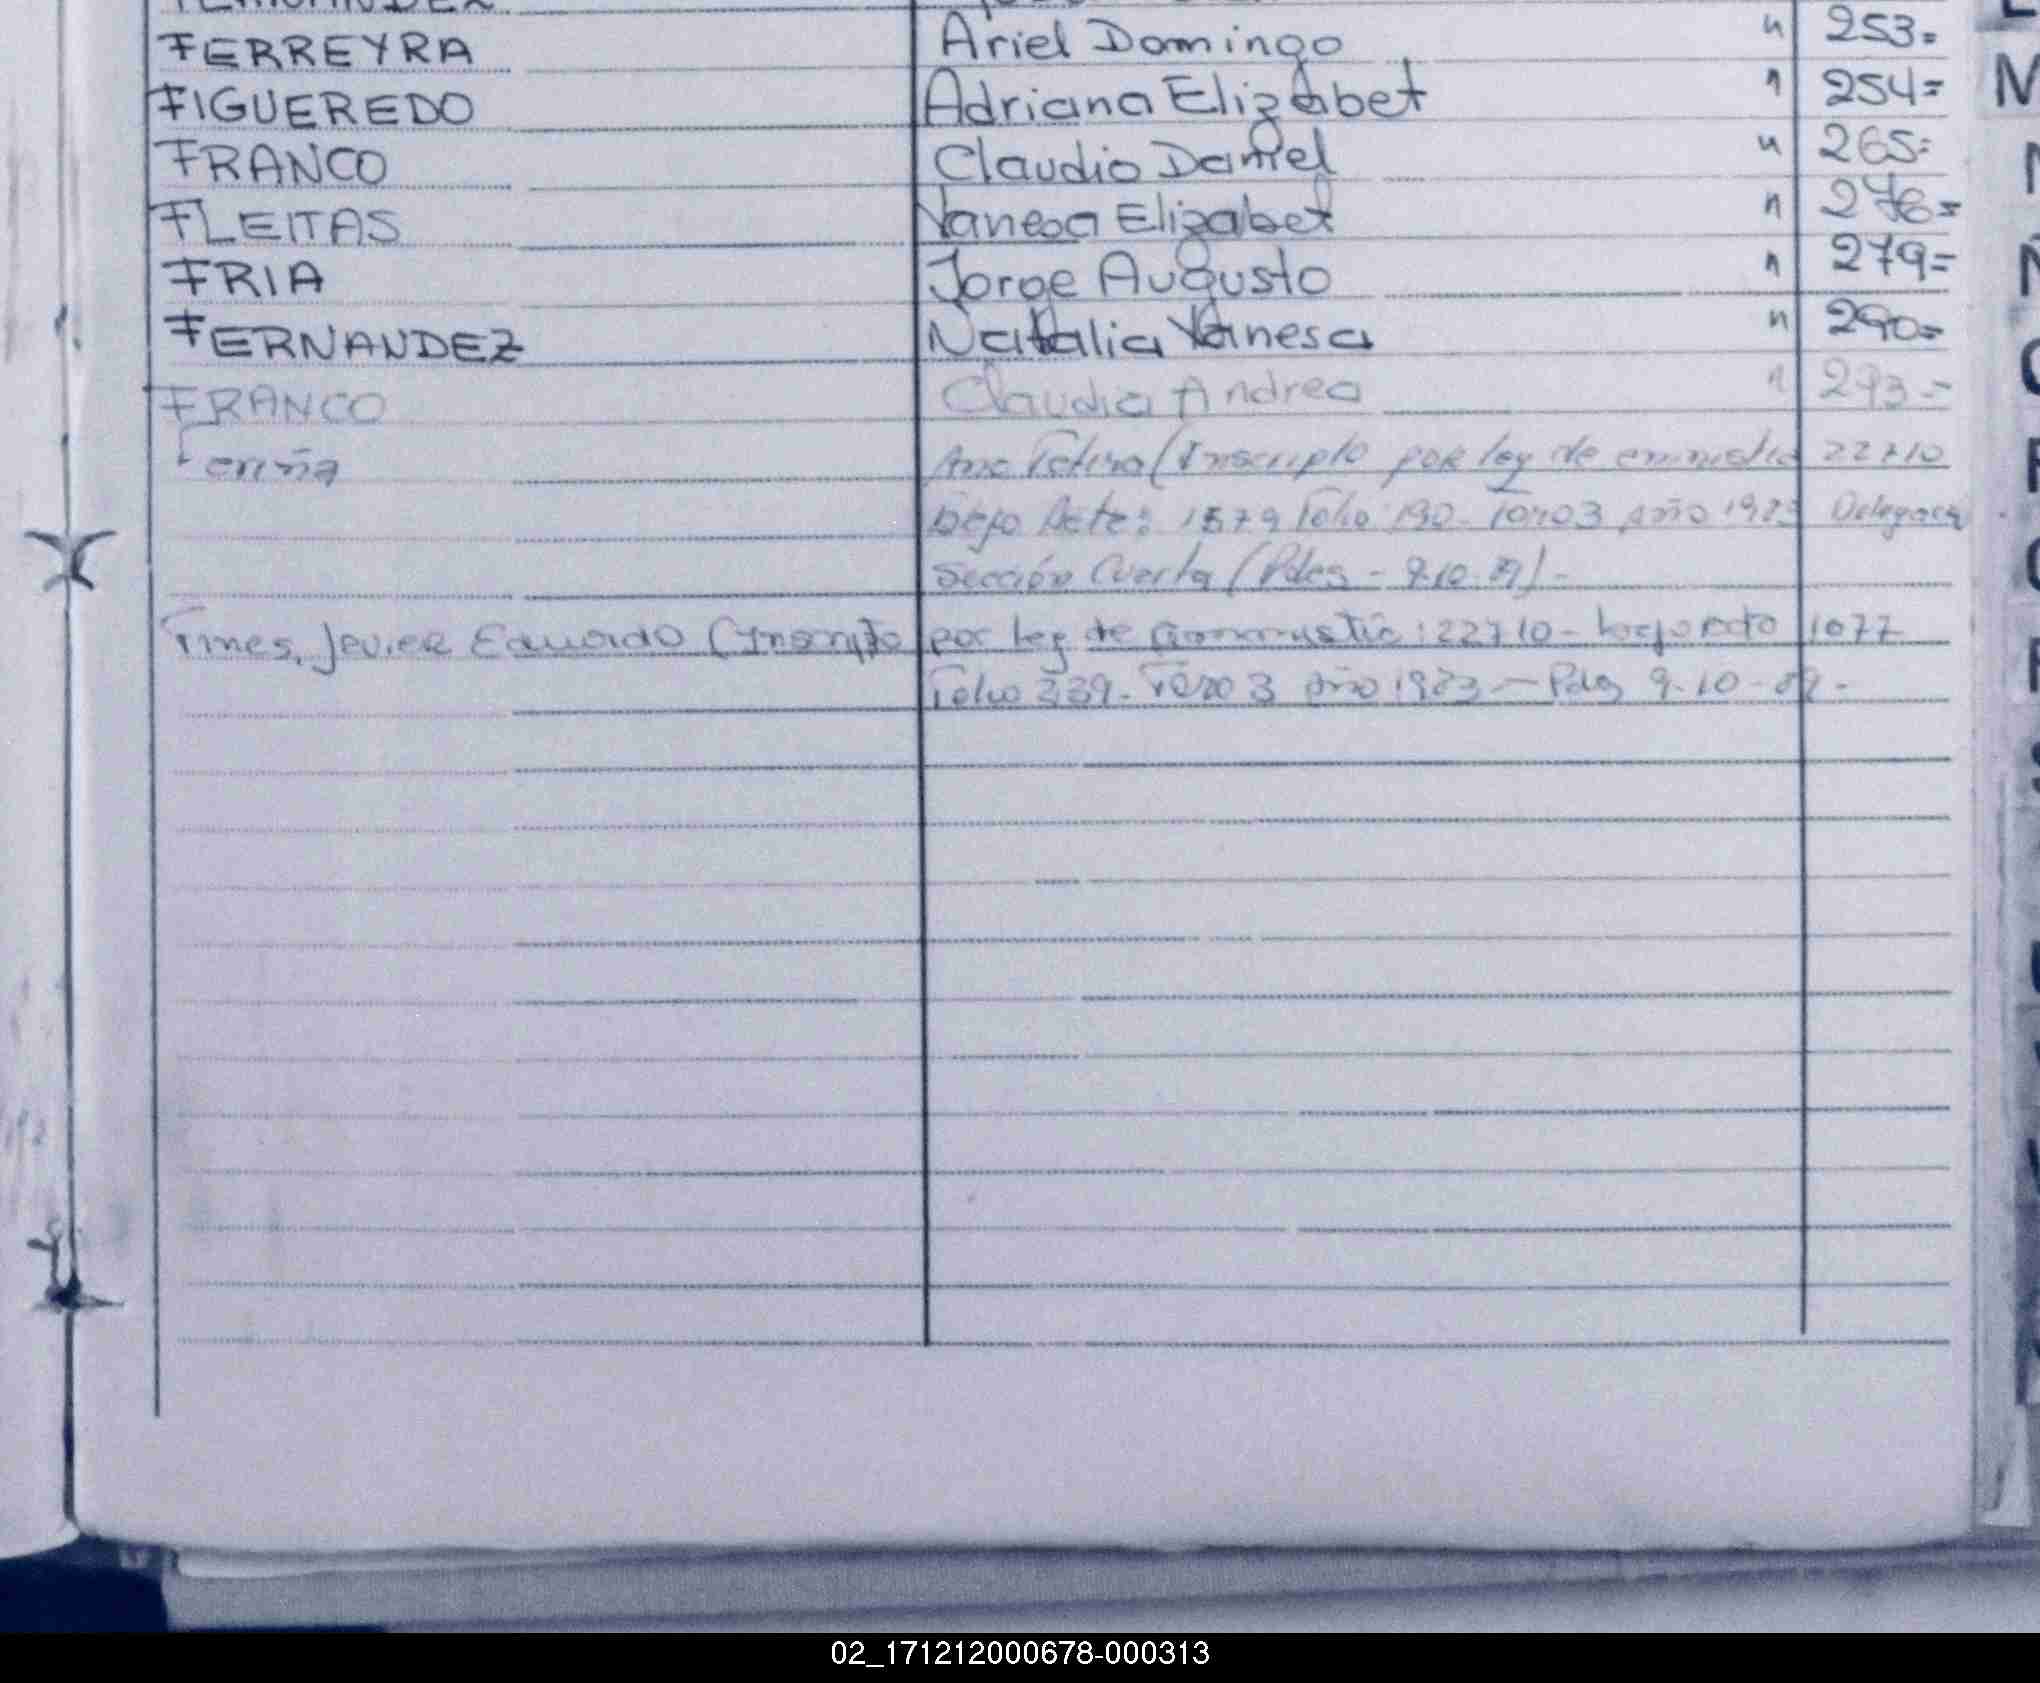 FERREYRA Ariel Domingo " 253=
FIGUEREDO Adriana Elizabet " 254=
FRANCO Claudio Daniel " 265=
FLEITAS Vanesa Elizabet " 276=
FRIA Jorge Augusto " 279=
FERNANDEZ Natalia Vanesa " 290=
FRANCO Claudia Andrea " 293.=
Fariña Ana (Inscripto por ley de 22710
bajo Acta: 1579 Folio 190 - Tomo 3 Año 1983
Sección Cuarta (Pdas - 9.10.89) -
Javier Eduardo (Inscripto por ley de 22710 - bajo Acto 1077
Folio 339 - Tomo 3 año 1983 - Pdas 9-10-89 -
02_171212000678-000313